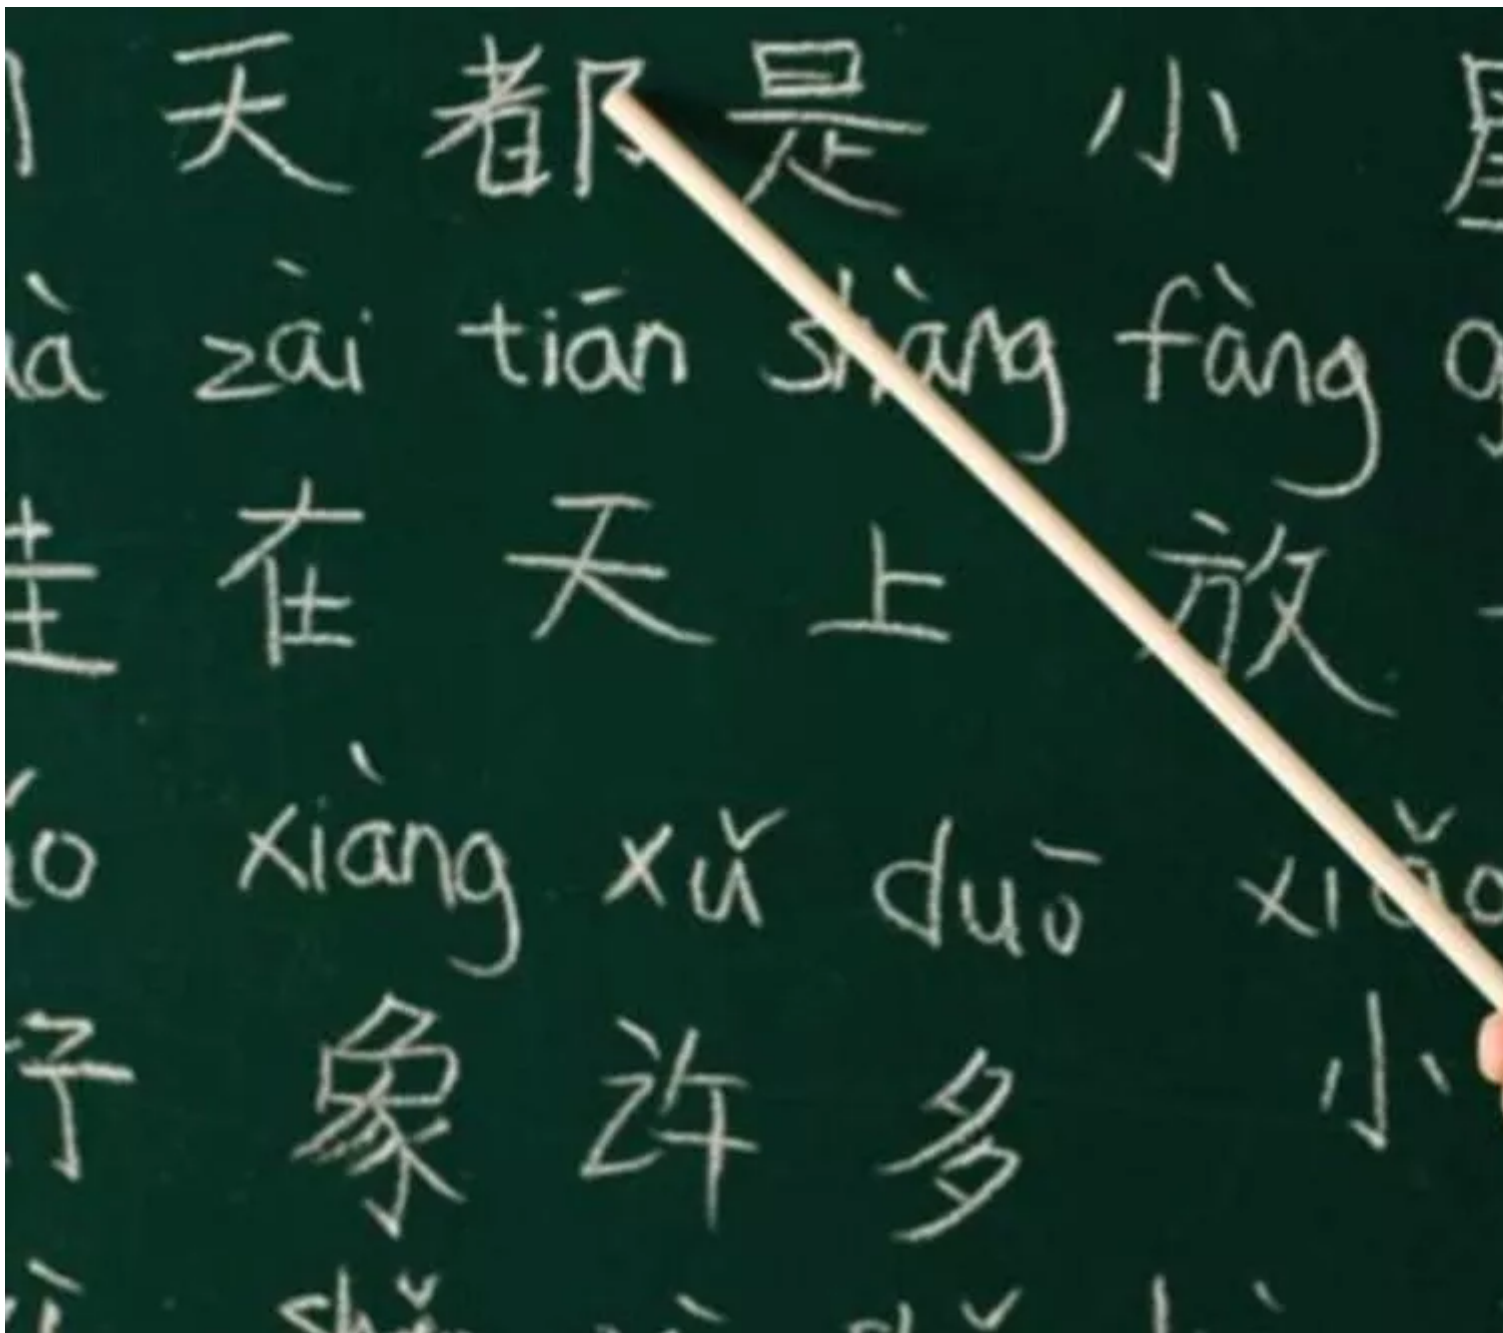 天 都 是 小
zài tiān shàng fàng
在 天 上 放
xiàng xǔ duō xiǎo
好 象 许 多 小